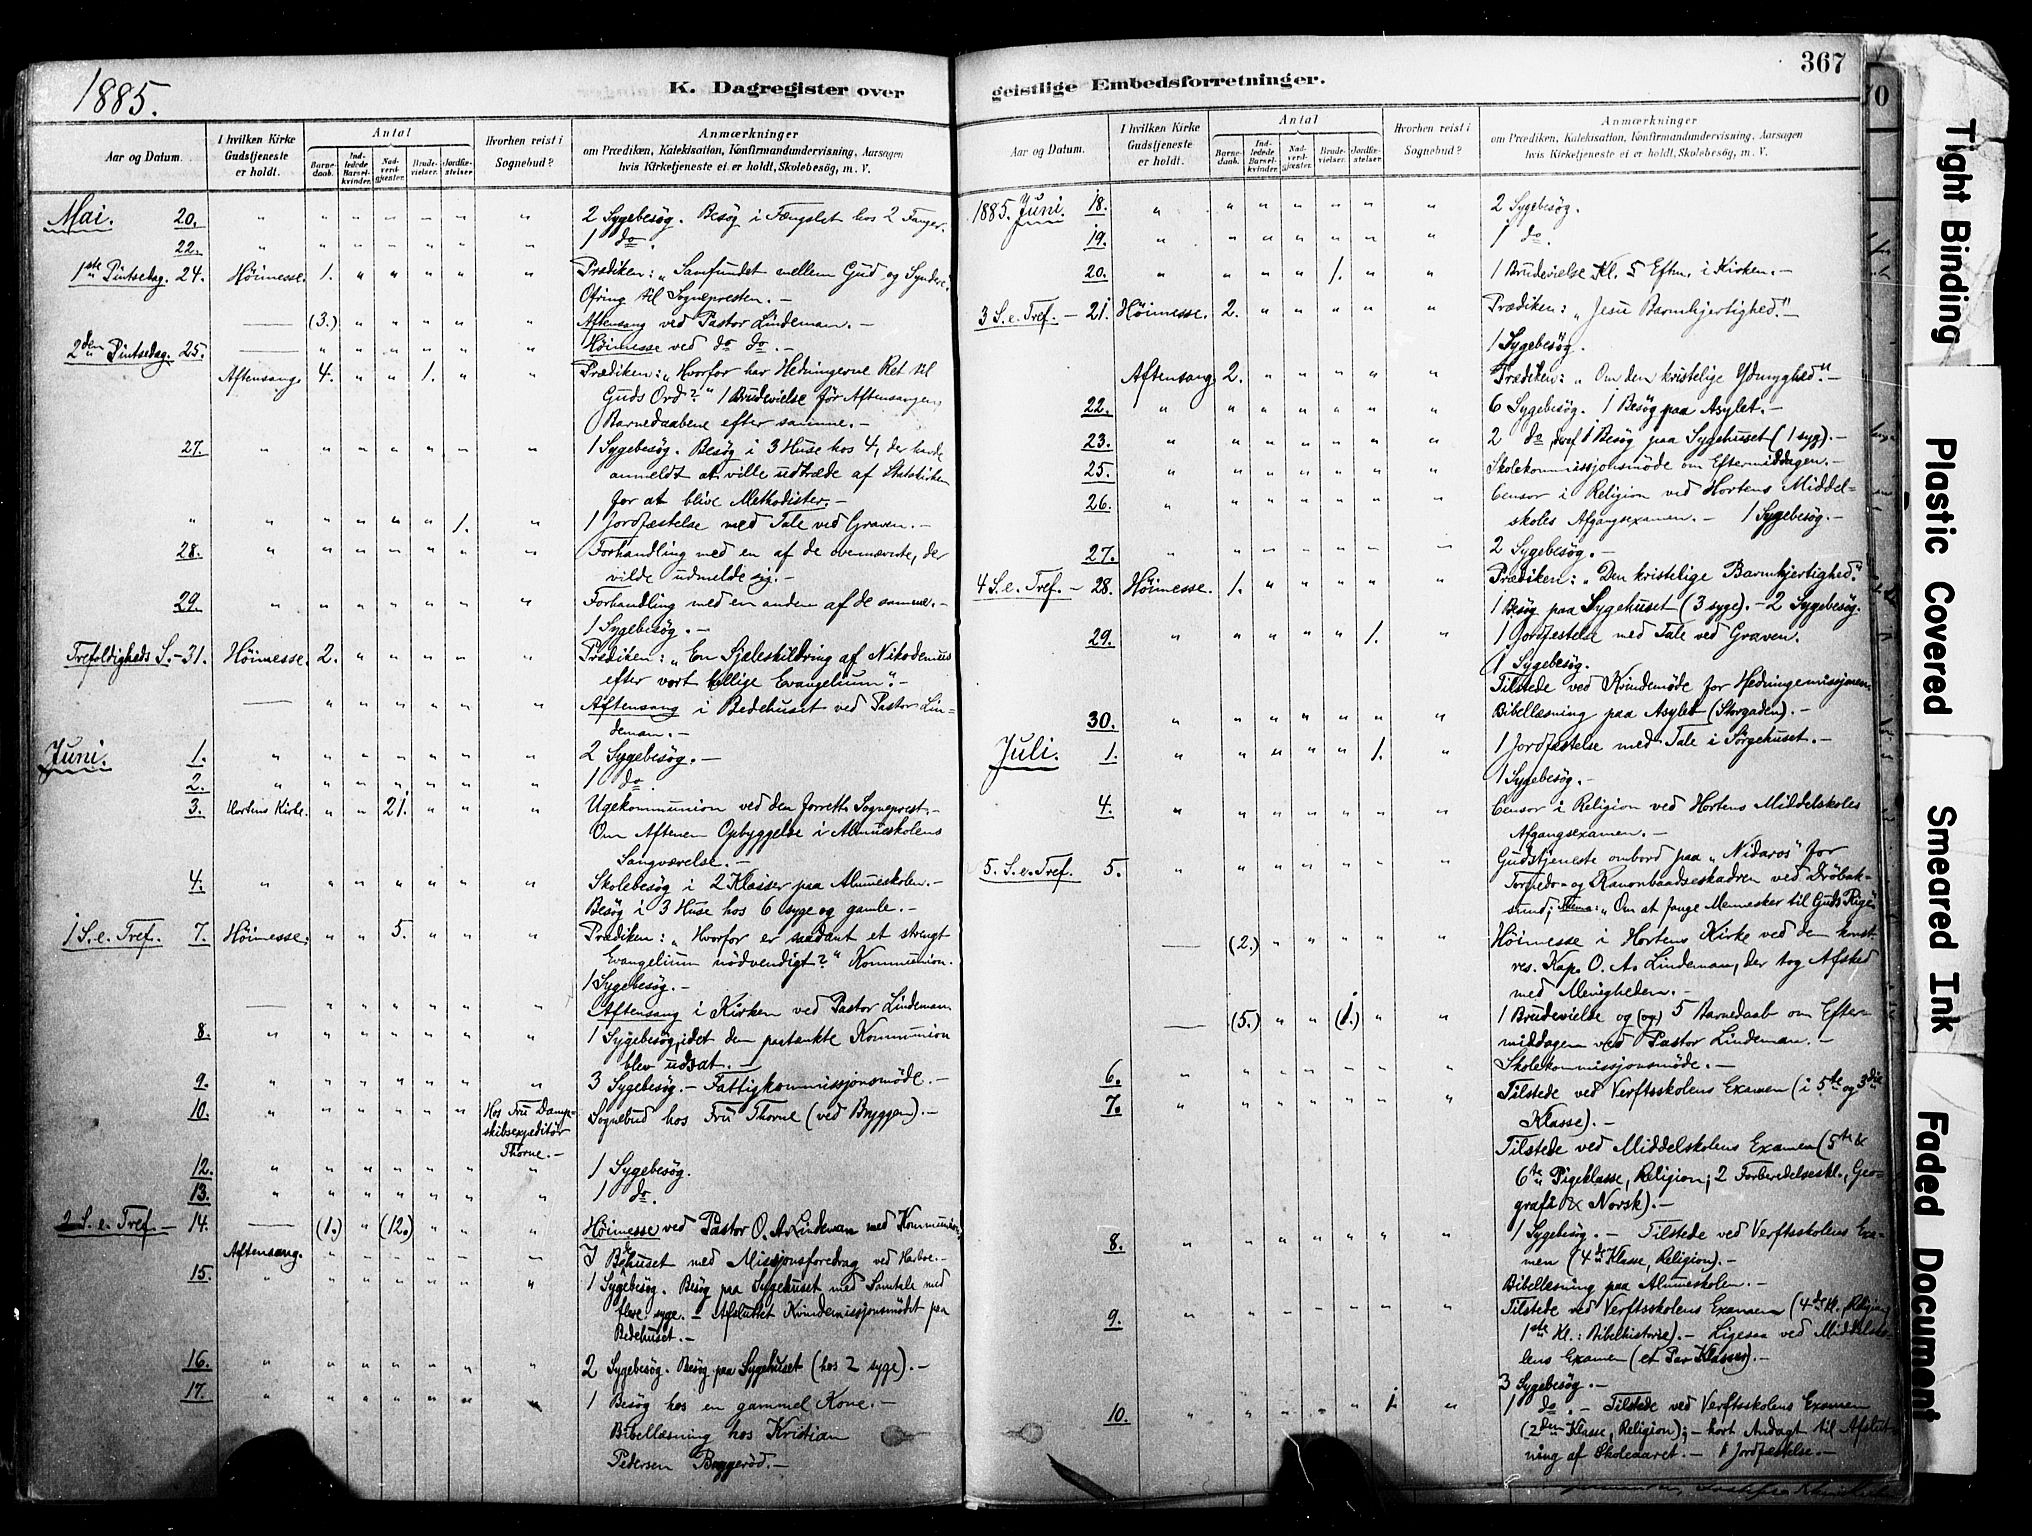 1885.
K. Dagregister over
Aar og Datum.
I hvilken Kirke Gudstjeneste er holdt.
Antal
Barnedaab.
Indledede Barselkvinder.
Nadverdgjester.
Brudevielser.
Jordfæstelser.
Hvorhen reist i Sognebud?
Anmærkninger
om Prædiken, Katekisation, Konfirmandundervisning, Aarsagen
hvis Kirketjeneste ei er holdt, Skolebesøg, m. V.
Mai. 20. " " " " " " " 2 Sygebesøg. Besøg i Fængslet hos 2 Fanger.
22. " " " " " " " 1 do.
1ste Pintsedag. 24. Höimesse. 1. " " " " " Prædiken: „Samfundet mellem Gud og Syndere.
Ofring til Sognepresten. —
— (3.) " " " " " Aftensang ved Pastor Lindeman. —
2den Pintsedag. 25. — " " " " " " Höimesse ved do do. —
Aftensang 4. " " 1. " " Prædiken: „Hvorfor har Hedningerne Ret til
Guds Ord?" 1 Brudevielse før Aftensangen,
Barnedaabene efter samme. —
27. " " " " " " " 1 Sygebesøg. Besøg i 3 Huse hos 4, der havde
anmeldt at ville udtræde af Statskirken
for at blive Methodister. —
" " " " " " 1. " 1 Jordfæstelse med Tale ved Graven. —
28. " " " " " " " Forhandling med en af de ovennævnte, der
vilde udmelde sig. —
29. " " " " " " " Forhandling med en anden af de samme. —
1 Sygebesøg. —
Trefoldigheds S. — 31. Höimesse. 2. " " " " " Prædiken: „En Sjæleskildring af Nikodemus
efter vort hellige Evangelium". —
— " " " " " " Aftensang i Bedehuset ved Pastor Lin-
deman. —
Juni. 1. " " " " " " " 2 Sygebesøg. —
2. " " " " " " " 1 do.
3. Hortens Kirke. " " 21. " " " Ugekommunion ved den forrett. Sogneprest. —
Om Aftenen Opbyggelse i Almueskolens
Sangværelse. —
4. " " " " " " " Skolebesøg i 2 Klasser paa Almueskolen. —
Besøg i 3 Huse hos 6 syge og gamle. —
1 S. e. Tref. 7. Höimesse. " " 5. " " " Prædiken: „Hvorfor er saadant et strengt
Evangelium nödvendigt?" Kommunion.
1 Sygebesøg. —
— " " " " " " Aftensang i Kirken ved Pastor Lindeman
8. " " " " " " " 1 Sygebesøg, idet den paatænkte Kommunion
blev udsat. —
9. " " " " " " " 3 Sygebesøg. — Fattigkommissjonsmöde. —
10. " " " " " " Hos Fru Damp- Sognebud hos Fru Thorne (ved Bryggen). —
skibsexpeditör
Thorne. —
12. " " " " " " " 1 Sygebesøg.
13. " " " " " " " 1 do.
2 S. e. Tref. — 14. — (1.) " (12.) " " " Höimesse ved Pastor O. A. Lindeman med Kommunion.
Aftensang. " " " " " " I Bedehuset med Missjonsforedrag ved Harboe. —
15. " " " " " " " 1 Sygebesøg. Besøg paa Sygehuset med Samtale med
flere syge. — Afsluttet Kvindemissjonsmödet paa
Bedehuset. —
16. " " " " " " " 2 Sygebesøg. Besøg paa Sygehuset (hos 2 syge). —
17. " " " " " " " 1 Besøg hos en gammel Kone. —
Bibellæsning hos Kristian
Pedersen Bryggeröd. —
367
geistlige Embedsforretninger.
Aar og Datum.
I hvilken Kirke Gudstjeneste er holdt.
Antal
Barnedaab.
Indledede Barselkvinder.
Nadverdgjester.
Brudevielser.
Jordfæstelser.
Hvorhen reist i Sognebud?
Anmærkninger
om Prædiken, Katekisation, Konfirmandundervisning, Aarsagen
hvis Kirketjeneste ei er holdt, Skolebesøg, m. V.
1885. Juni. 18. " " " " " " " 2 Sygebesøg.
19. " " " " " " " 1 do.
20. " " " " 1. " " 1 Brudevielse Kl. 5 Eftm. i Kirken. —
3 S. e. Tref. — 21. Höimesse. 2. " " " " " Prædiken: „Jesu Barmhjertighed." —
1 Sygebesøg.
Aftensang. 2. " " " " " Prædiken: „Om den kristelige Ydmyghed." —
22. " " " " " " " 6 Sygebesøg. 1 Besøg paa Asylet. —
23. " " " " " " " 2 do, deraf 1 Besøg paa Sygehuset (1 syg). —
25. " " " " " " " Skolekommissjonsmöde om Eftermiddagen. —
26. " " " " " " " Censor i Religion ved Hortens Middel-
skoles Afgangsexamen. — 1 Sygebesøg. —
27. " " " " " " " 2 Sygebesøg. —
4 S. e. Tref. — 28. Höimesse. 1. " " " " " Prædiken: „Den kristelige Barmhjertighed."
1 Besøg paa Sygehuset (3 syge). — 2 Sygebesøg.
29. " " " " " 1. " 1 Jordfæstelse med Tale ved Graven.
1 Sygebesøg.
Tilstede ved Kvindemöde for Hedningemissjonen
30. " " " " " " " Bibellæsning paa Asylet (Storgaden). —
Juli. 1. " " " " " 1. " 1 Jordfæstelse med Tale i Sørgehuset. —
1 Sygebesøg. —
4. " " " " " " " Censor i Religion ved Hortens Middelskoles
Afgangsexamen. —
5. S. e. Tref. 5. " " " " " " " Gudstjeneste ombord paa „Nidaros" for
Torpedo- og Kanonbaadseskadren ved Dröbak-
sund; Thema: „Om at fange Mennesker til Guds Rige."
— (2.) " " " " " Höimesse i Hortens Kirke ved den konst.
res. Kap. O. A. Lindeman, der tog Afsked
med Menigheden. —
— (5.) " " (1.) " " 1 Brudevielse og (og) 5 Barnedaab om Efter-
middagen ved Pastor Lindeman. —
6. " " " " " " " Skolekommissjonsmöde. —
7. " " " " " " " Tilstede ved Verftsskolens Examen (i 5te og 3die
Klasse). —
Tilstede ved Middelskolens Examen (5te &
6te Pigeklasse, Religion; 2 Forberedelseskl., Geo-
grafi & Norsk). —
8. " " " " " " " 1 Sygebesøg. — Tilstede ved Verftsskolens Exa-
men (4de Klasse, Religion). —
Bibellæsning paa Almueskolen. —
9. " " " " " " " Tilstede ved Verftsskolens Examen (4de Kl. Religion,
1ste Kl.: Bibelhistorie). — Ligesaa ved Middelsko-
lens Examen (et Par Klasser). —
3 Sygebesøg. —
10. " " " " " 1. " 1 do. — Tilstede ved Verftsskolens Examen
(2den Klasse, Religion); — kort Andagt til Afslut-
ning af Skoleaaret. — 1 Jordfæstelse. —
70
Tight Binding
Plastic Covered
Smeared Ink
Faded Document